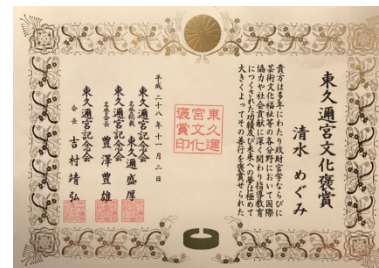 東久邇宮文化褒賞
清水 めぐみ
貴方は多年にわたり政財官学ならびに
芸術文化福祉等の各分野において国際
協力や社会貢献に深く関わり指導教育
につくされた功績及び未来への夢は極めて
大きくよってその善行を褒賞せられた
東久邇
宮文化
褒賞印
平成二十八年十一月二日
東久邇宮記念会
名誉総裁 東久邇盛厚
東久邇宮記念会
名誉会長 豊澤豊雄
東久邇宮記念会
会長 吉村靖弘